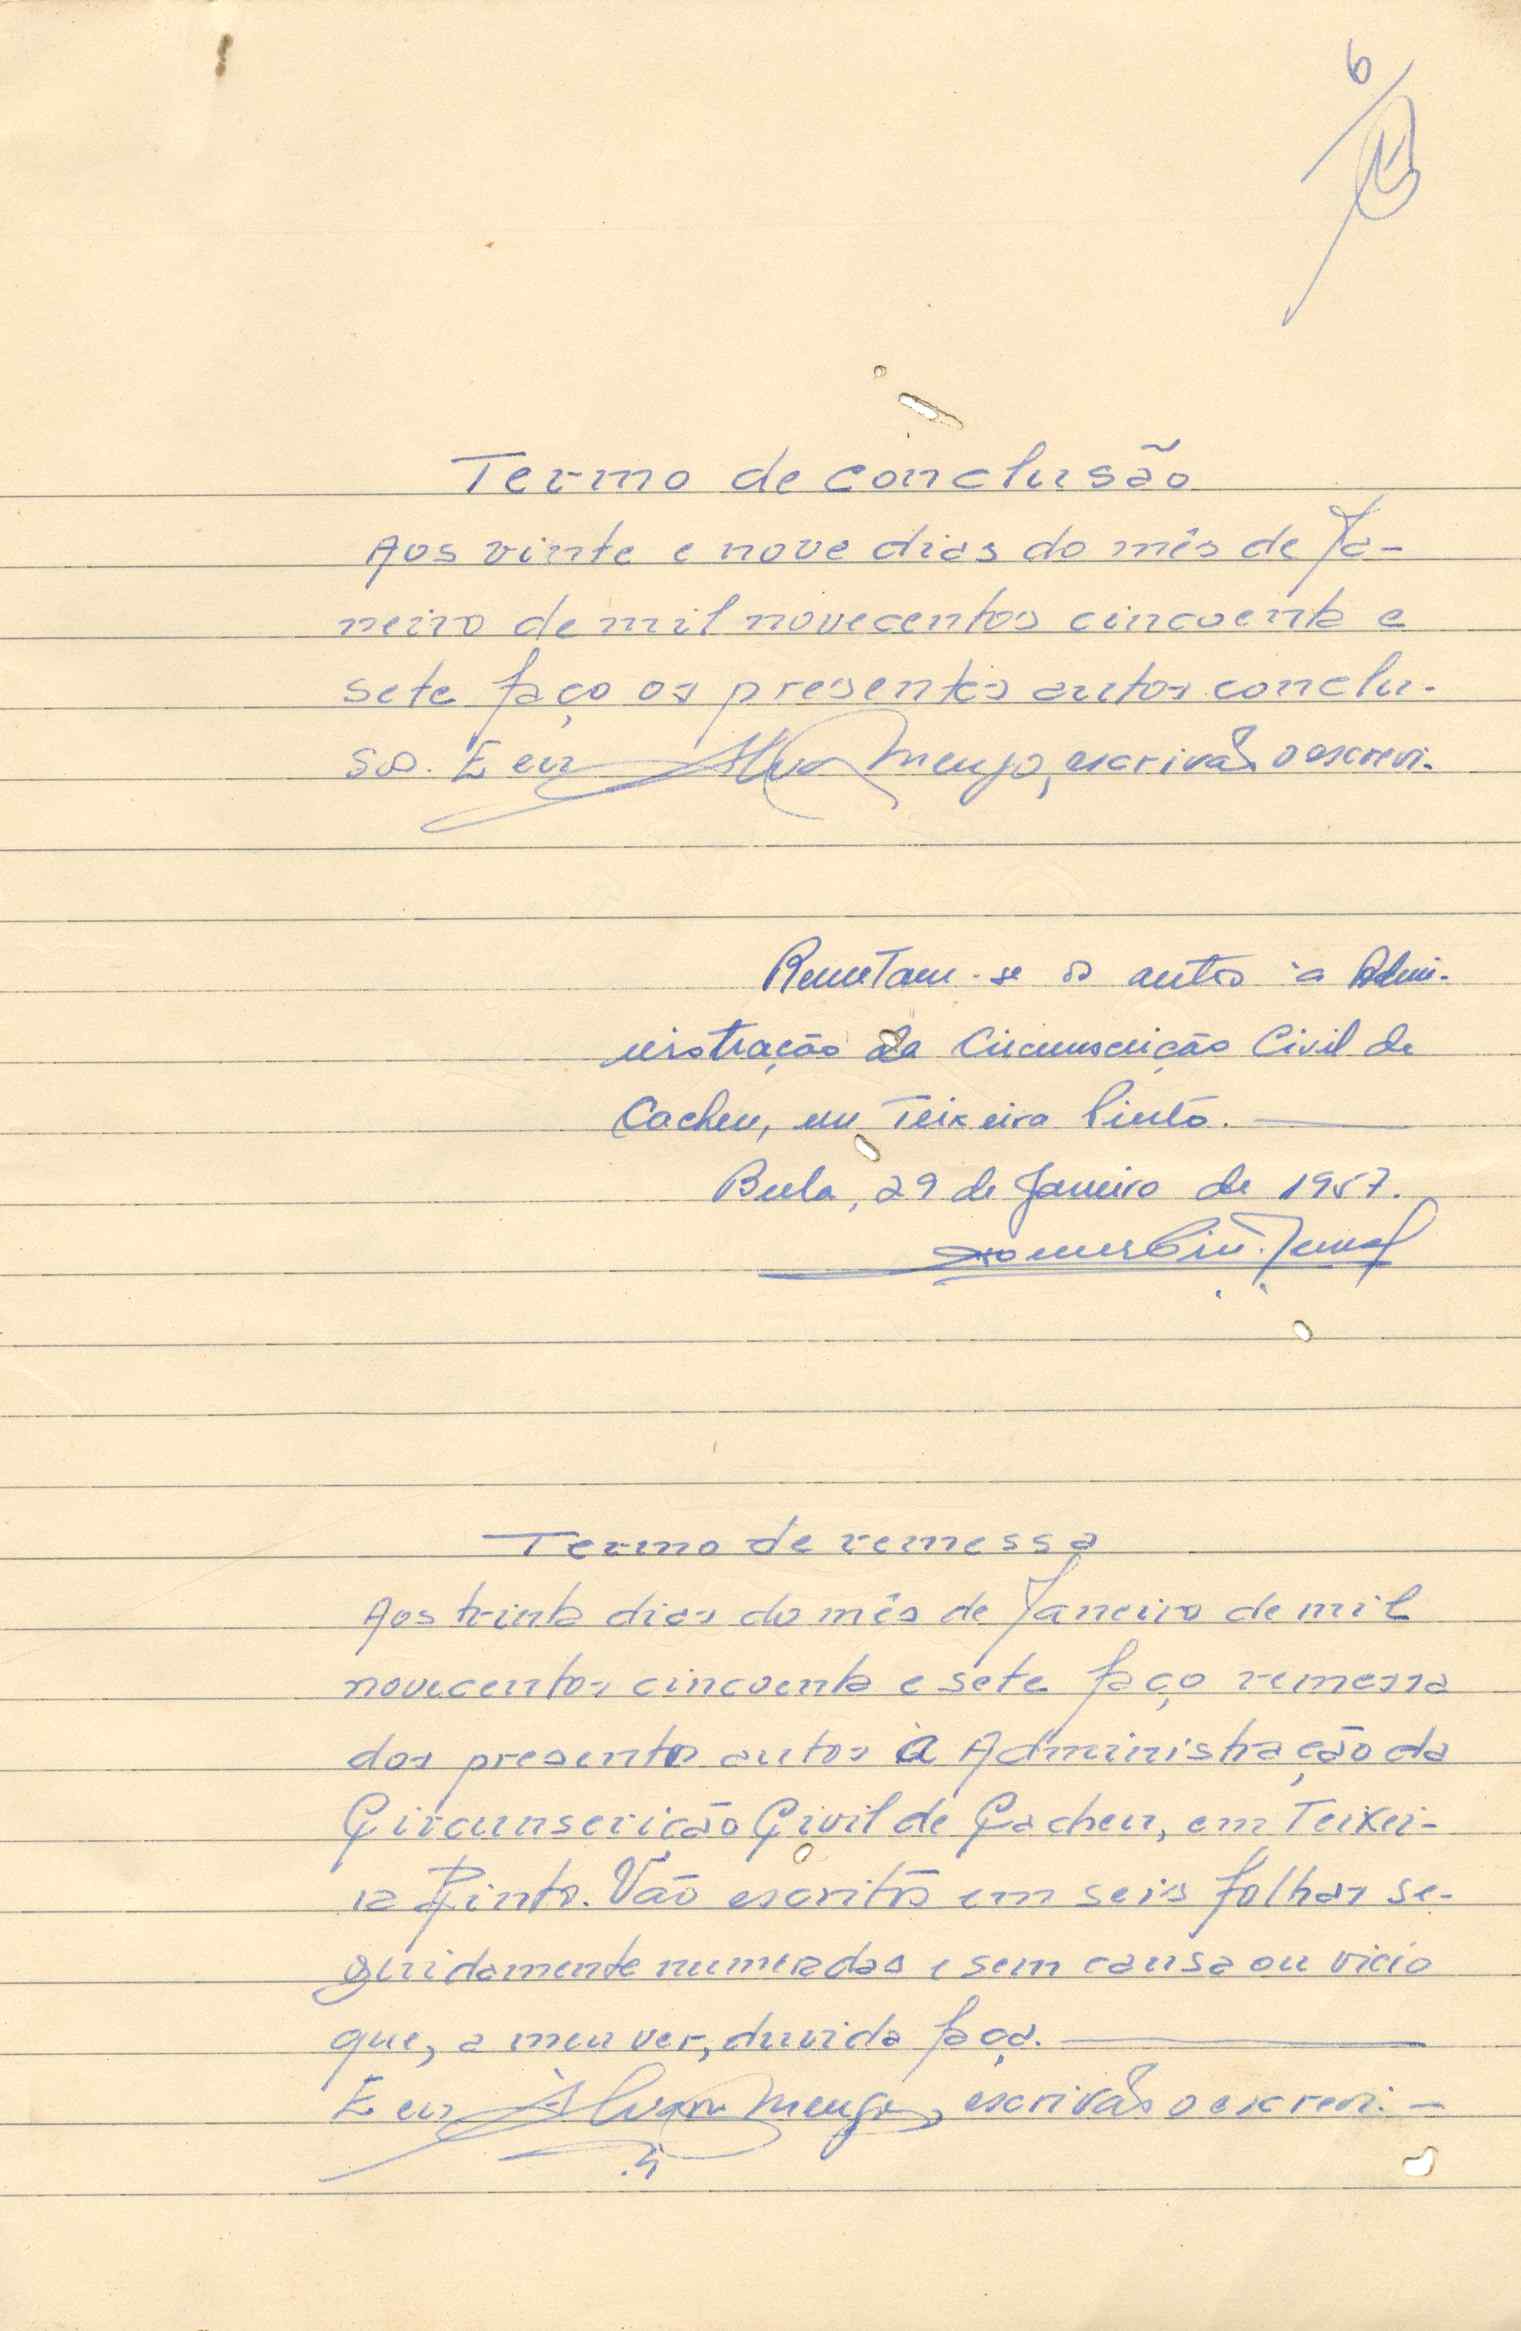 6
Termo de conclusão
Aos vinte e nove dias do mês de Ja-
neiro de mil novecentos cincoenta e
sete faço os presentes autos conclu-
sos. E eu escrivão o escrevi.
Remetam-se os autos à Admi-
nistração da Circunscrição Civil de
Cacheu, em Teixeira Pinto.
Bula, 29 de Janeiro de 1957.
Termo de remessa
Aos trinta dias do mês de Janeiro de mil
novecentos cincoenta e sete faço remessa
dos presentes autos à Administração da
Circunscrição Civil de Cacheu, em Teixei-
ra Pinto. Vão escritos em seis folhas se-
guidamente numeradas e sem causa ou vicio
que, a meu ver, duvida faça.
E eu escrivão o escrevi.